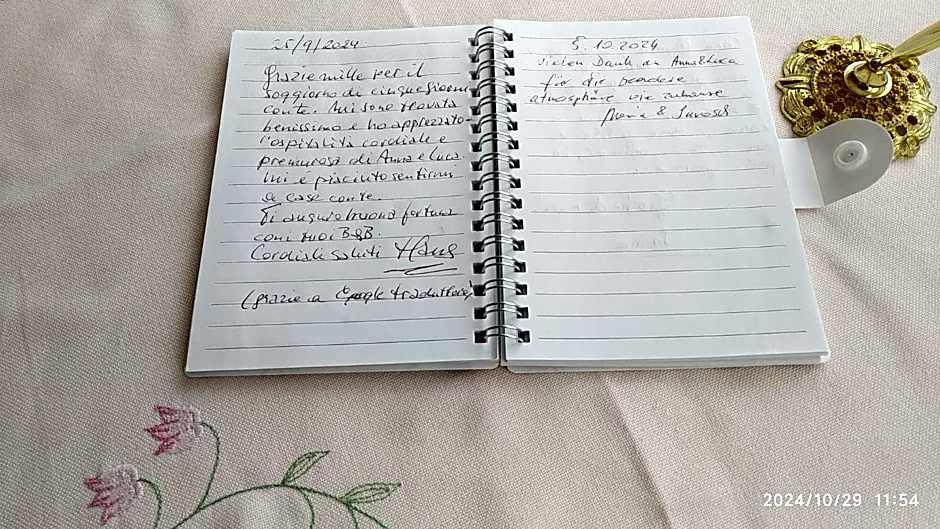 25/9/2024
Grazie mille per il
soggiorno di cinque giorni
con te. Mi sono trovata
benissimo e ho apprezzato
l'ospitalità cordiale e
premurosa di Anna e Luca.
Mi è piaciuto sentirmi
a casa con te.
Ti auguro buona fortuna
con i tuoi B&B.
Cordiali saluti Hans
(grazie a Google traduttore)
5.10.2024
Vielen Dank an Anna & Luca
für die besondere
atmosphäre wie zuhause
&
2024/10/29 11:54